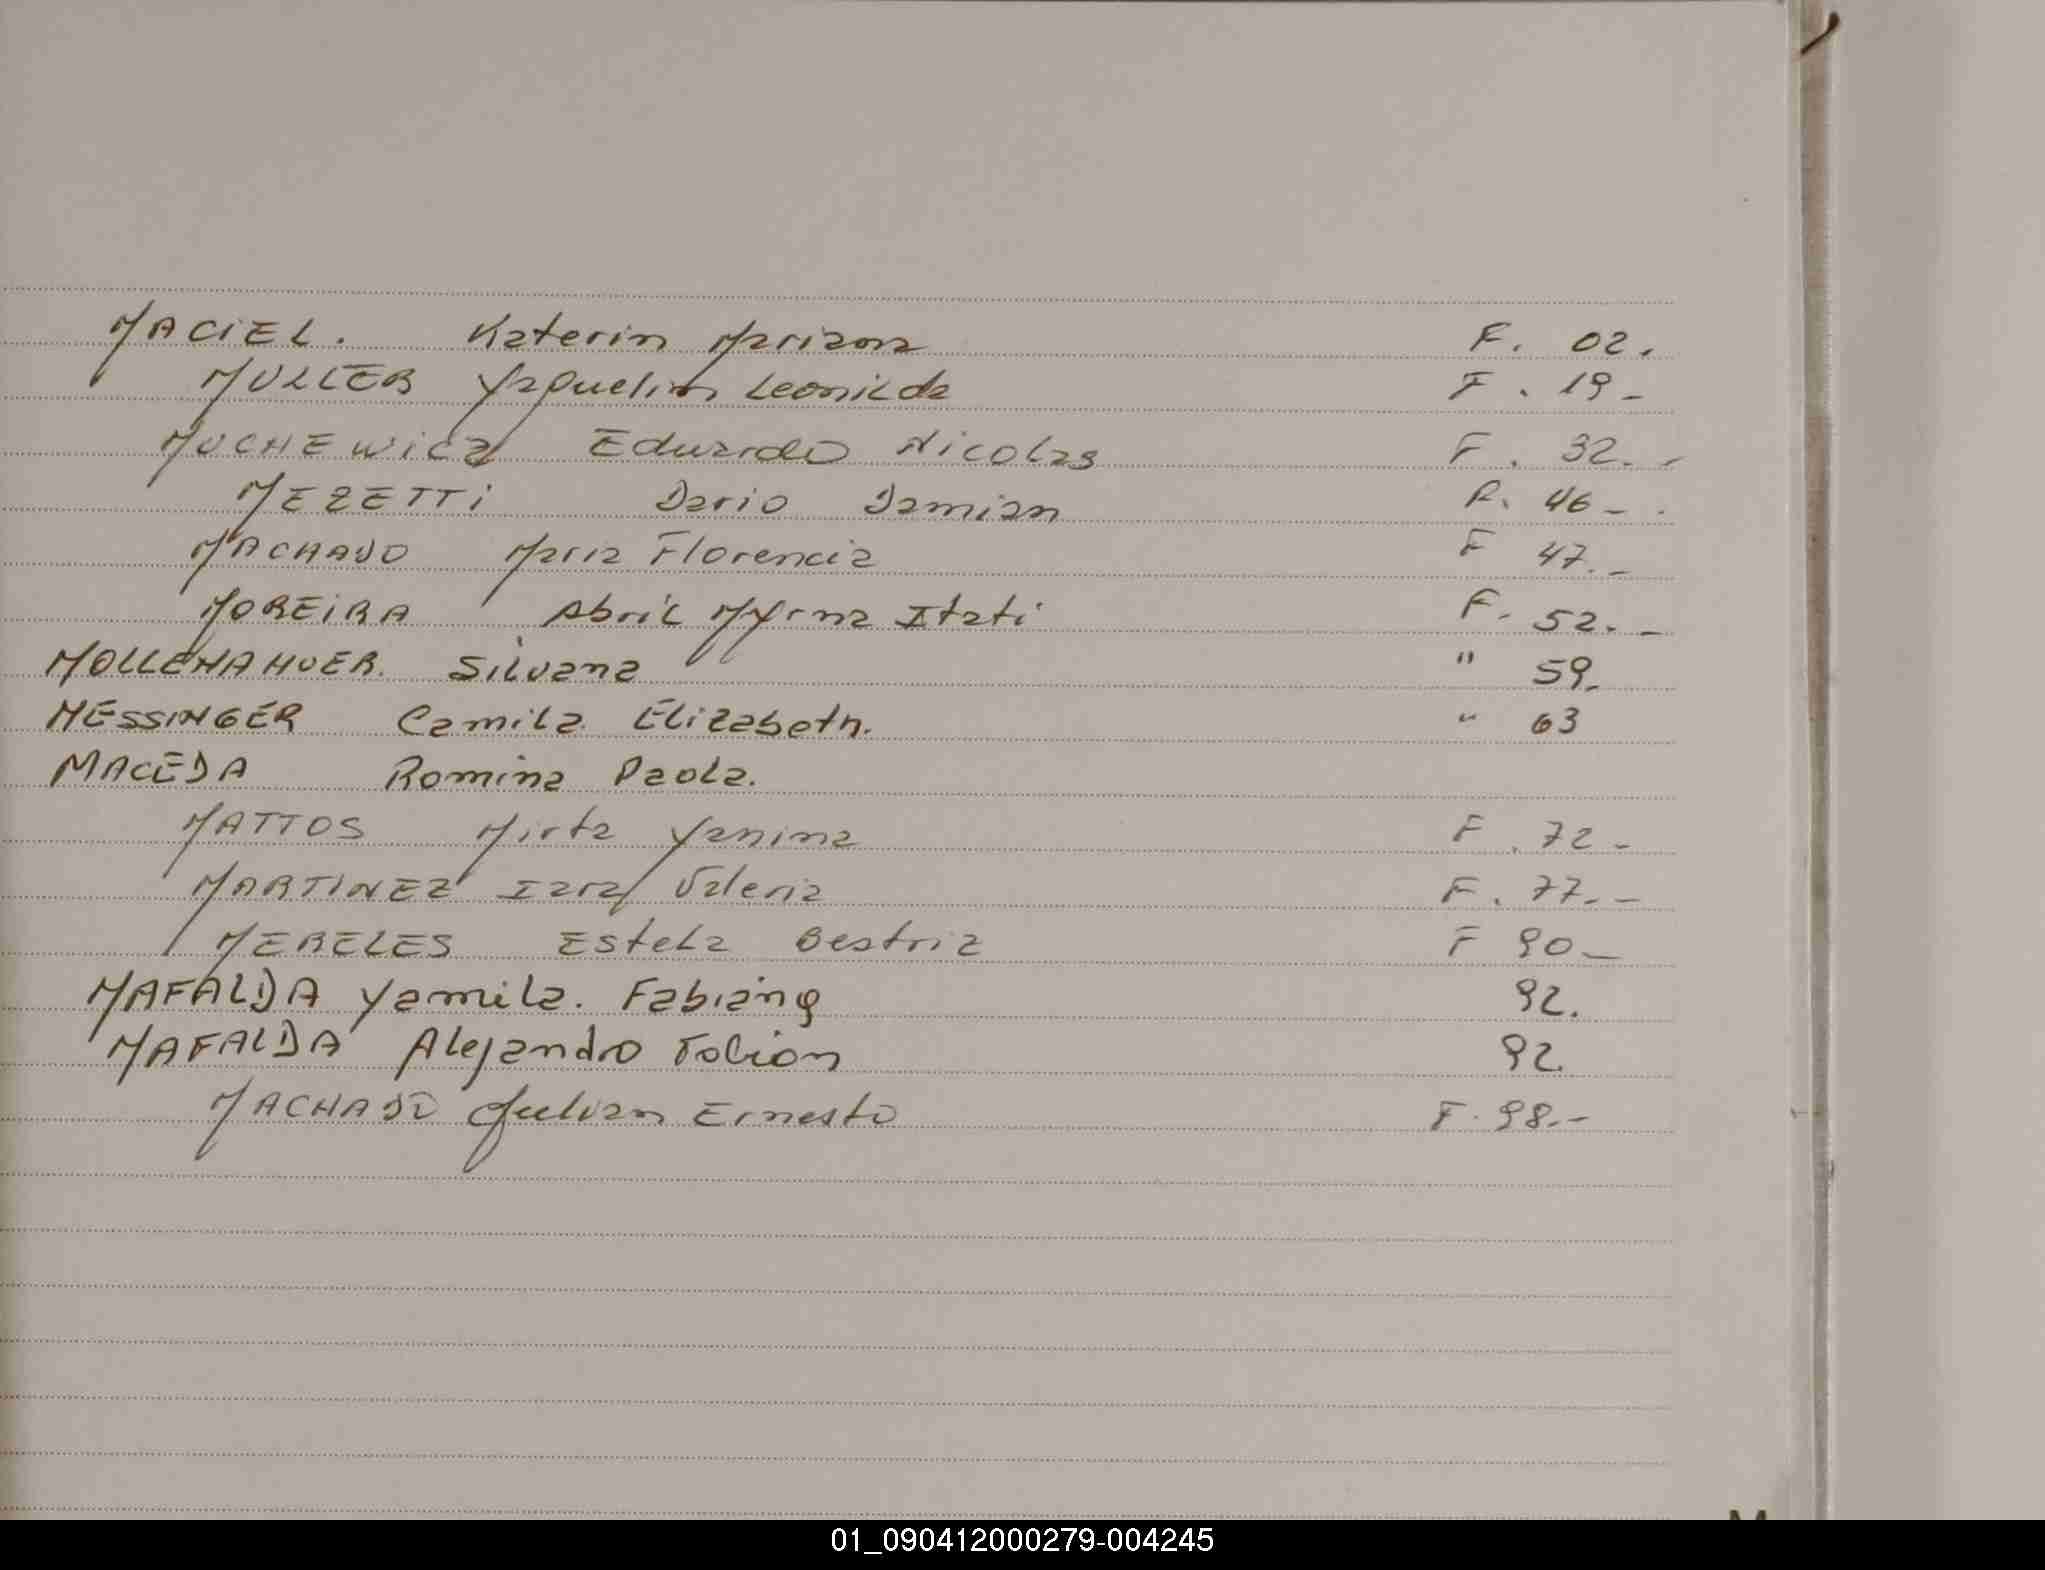 MACIEL. Katerin Mariana F. 02.
MULLER Yaquelin Leonilda F. 19-
MUCHEWicz Eduardo Nicolas F. 32.-
MEZETTi Dario Damian F. 46-
MACHADO Maria Florencia F 47.-
MOREiRA Abril Myrna Itati F. 52.-
MOLLENAHUER. Silvana " 59.
MESSINGER Camila Elizabeth. " 63
MACEDA Romina Paola.
MATTOS Mirta Yanina F. 72-
MARTINEZ Iara Valeria F. 77.-
MERELES Estela Beatriz F 90-
MAFALDA Yamila. Fabiana 92.
MAFALDA Alejandro Fabian 92.
MACHADO Julian Ernesto F. 98.-
M
01_090412000279-004245